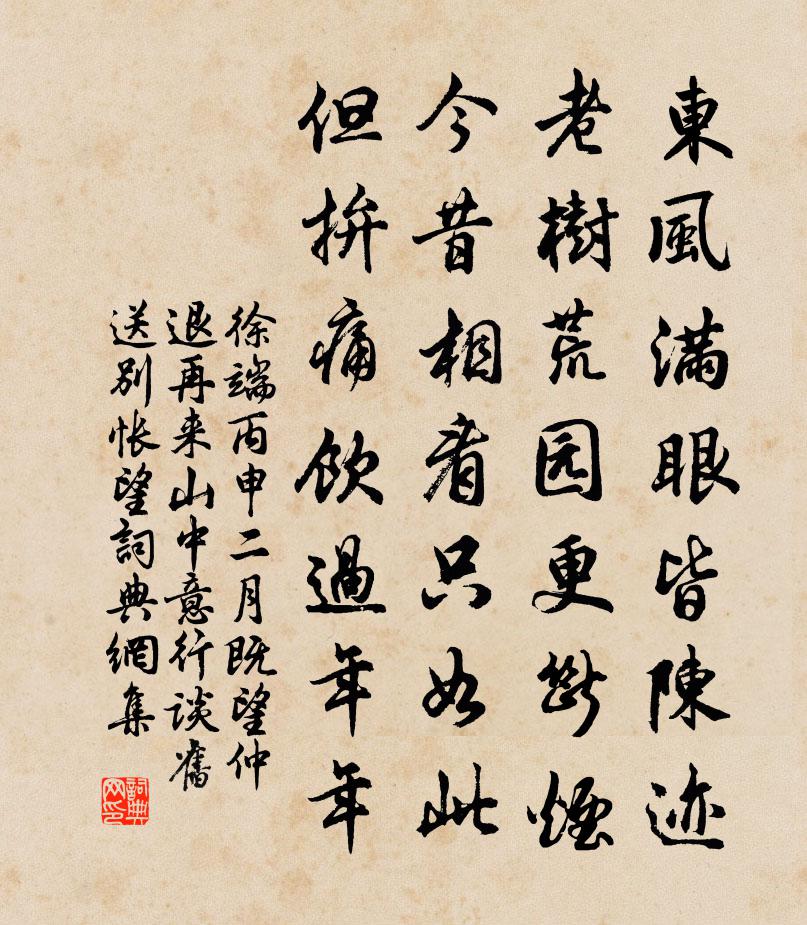 東風滿眼皆陳迹
老樹荒园更斷煙
今昔相看只如此
但拚痛飲過年年
徐端丙申二月既望仲
退再来山中意行談舊
送別悵望詞典網集
詞典网印